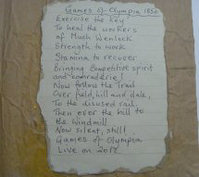 Games of Olympia 1850
Exercise the key
To heal the workers
of Much Wenlock
Strength to work
Stamina to recover
Bringing competitive spirit
and comraderie!
Now follow the Trail
Over field, hill and dale,
To the disused rail.
Then over the hill to
the Windmill
Now silent, still!
Games of Olympia
Live on 2012